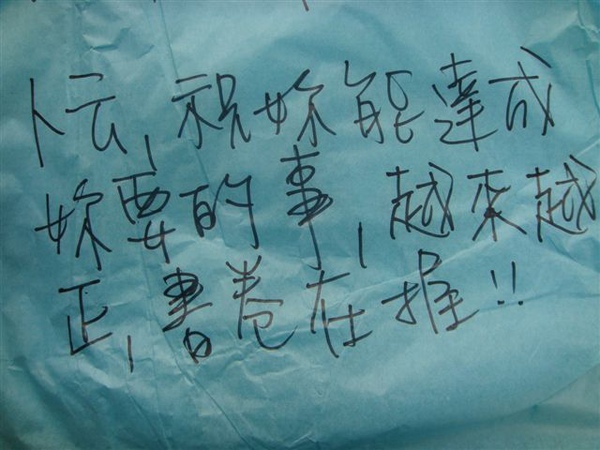 卜云,祝妳能達成
妳要的事,越來越
正,書卷在握!!